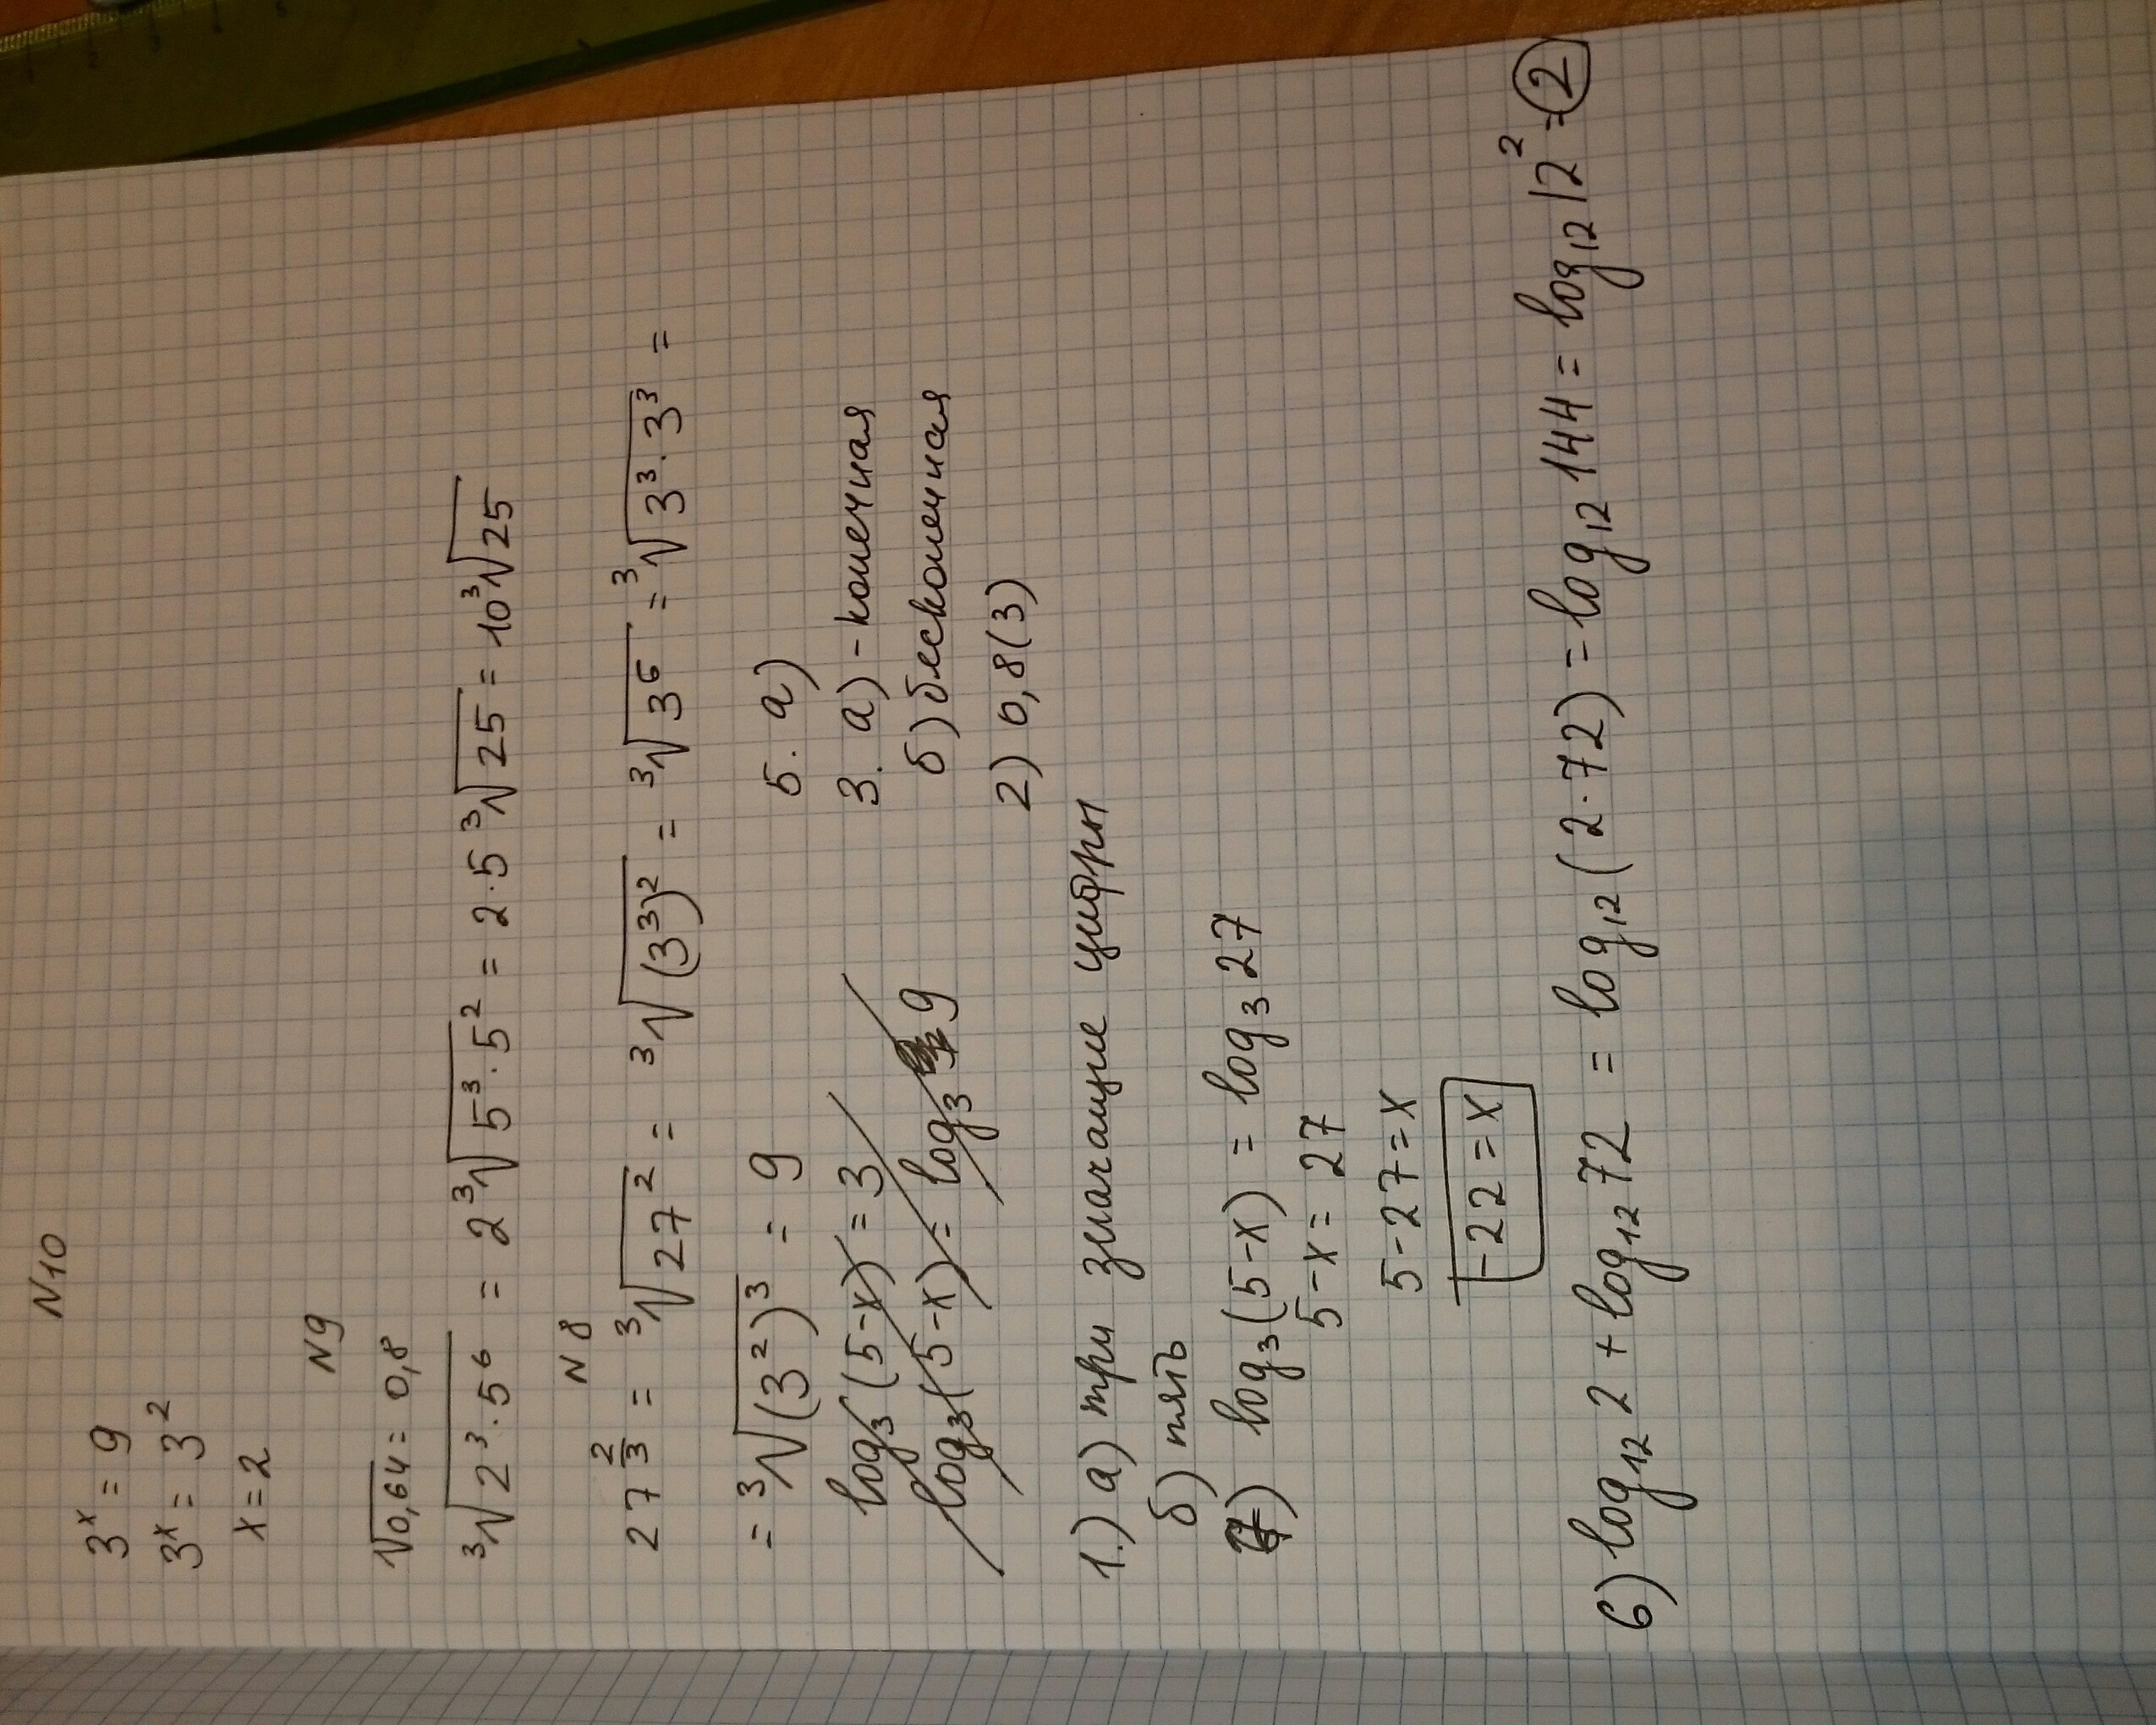 N10
3ˣ = 9
3ˣ = 3²
x = 2
N9
√0,64 = 0,8
³√(2³·5⁶) = 2³√(5³·5²) = 2·5³√25 = 10³√25
N8
27^(2/3) = ³√(27²) = ³√((3³)²) = ³√(3⁶) = ³√(3³·3³) =
= ³√((3²)³) = 9
5. а)
log₃(5-x) = 3
3. а) - конечная
log₃(5-x) = log₃ 9
б) бесконечная
2) 0,8(3)
1.) а) три значащие цифры
б) пять
7) log₃(5-x) = log₃ 27
5-x = 27
5-27 = x
-22 = x
6) log₁₂ 2 + log₁₂ 72 = log₁₂(2·72) = log₁₂ 144 = log₁₂ 12² = 2